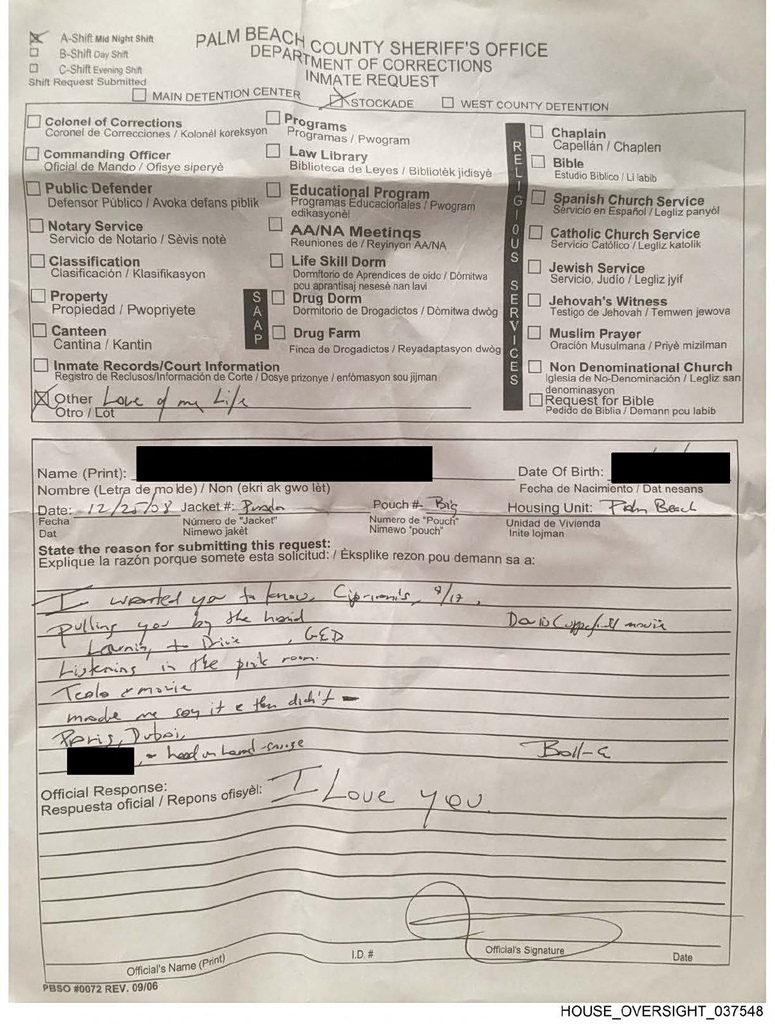 A-Shift Mid Night Shift
B-Shift Day Shift
C-Shift Evening Shift
Shift Request Submitted
PALM BEACH COUNTY SHERIFF'S OFFICE
DEPARTMENT OF CORRECTIONS
INMATE REQUEST
MAIN DETENTION CENTER STOCKADE WEST COUNTY DETENTION
Colonel of Corrections
Coronel de Correcciones / Kolonèl koreksyon
Commanding Officer
Oficial de Mando / Ofisye siperyè
Public Defender
Defensor Público / Avoka defans piblik
Notary Service
Servicio de Notario / Sèvis notè
Classification
Clasificación / Klasifikasyon
Property
Propiedad / Pwopriyete
Canteen
Cantina / Kantin
Inmate Records/Court Information
Registro de Reclusos/Información de Corte / Dosye prizonye / enfòmasyon sou jijman
Other Love of my Life
Otro / Lòt
Programs
Programas / Pwogram
Law Library
Biblioteca de Leyes / Bibliotèk jidisyè
Educational Program
Programas Educacionales / Pwogram
edikasyonèl
AA/NA Meetings
Reuniones de / Reyinyon AA/NA
SAAP
Life Skill Dorm
Dormitorio de Aprendices de oido / Dòmitwa
pou aprantisaj nesesè nan lavi
Drug Dorm
Dormitorio de Drogadictos / Dòmitwa dwòg
Drug Farm
Finca de Drogadictos / Reyadaptasyon dwòg
RELIGIOUS SERVICES
Chaplain
Capellán / Chaplen
Bible
Estudio Biblico / Li labib
Spanish Church Service
Servicio en Español / Legliz panyòl
Catholic Church Service
Servicio Católico / Legliz katolik
Jewish Service
Servicio, Judío / Legliz jyif
Jehovah's Witness
Testigo de Jehovah / Temwen jewova
Muslim Prayer
Oración Musulmana / Priyè mizilman
Non Denominational Church
Iglesia de No-Denominación / Legliz san
denominasyon
Request for Bible
Pedido de Biblia / Demann pou labib
Name (Print): Date Of Birth:
Nombre (Letra de molde) / Non (ekri ak gwo lèt) Fecha de Nacimiento / Dat nesans
Date: 12/25/08 Jacket #: Pouch #: Big Housing Unit: Palm Beach
Fecha Número de "Jacket" Numero de "Pouch" Unidad de Vivienda
Dat Nimewo jakèt Nimewo "pouch" Inite lojman
State the reason for submitting this request:
Explique la razón porque somete esta solicitud: / Èksplike rezon pou demann sa a:
I wanted you to know, Cipriani's, 9/17,
pulling you by the hand David Copperfield movie
Learning to Drive, GED
Listening in the pink room.
movie
made me say it & then didn't -
Paris, Dubai,
- head on hand
Official Response: I Love you
Respuesta oficial / Repons ofisyèl:
Official's Name (Print) I.D. # Official's Signature Date
PBSO #0072 REV. 09/06
HOUSE_OVERSIGHT_037548